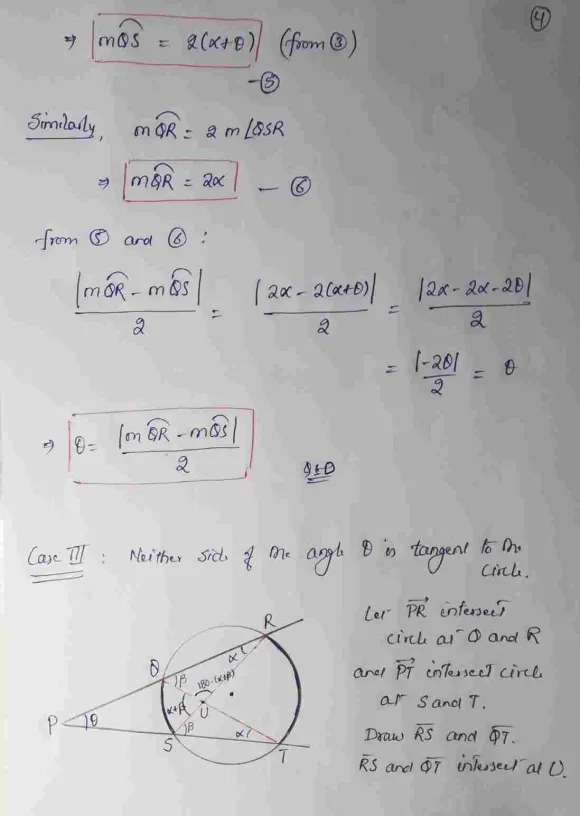 4
⇒ m⌒QS = 2(α+θ) (from ③)
— ⑤
Similarly, m⌒QR = 2 m∠QSR
⇒ m⌒QR = 2α — ⑥
from ⑤ and ⑥ :
|m⌒QR - m⌒QS| / 2 = |2α - 2(α+θ)| / 2 = |2α - 2α - 2θ| / 2
= |-2θ| / 2 = θ
⇒ θ = |m⌒QR - m⌒QS| / 2
Case III : Neither side of the angle θ is tangent to the
circle.
Let PR→ intersect
circle at Q and R
and PT→ intersect circle
at S and T.
Draw R̅S̅ and Q̅T̅.
R̅S̅ and Q̅T̅ intersect at U.
R
α
Q
β
180-(α+β)
α+β
U
P
θ
S
β
α
T